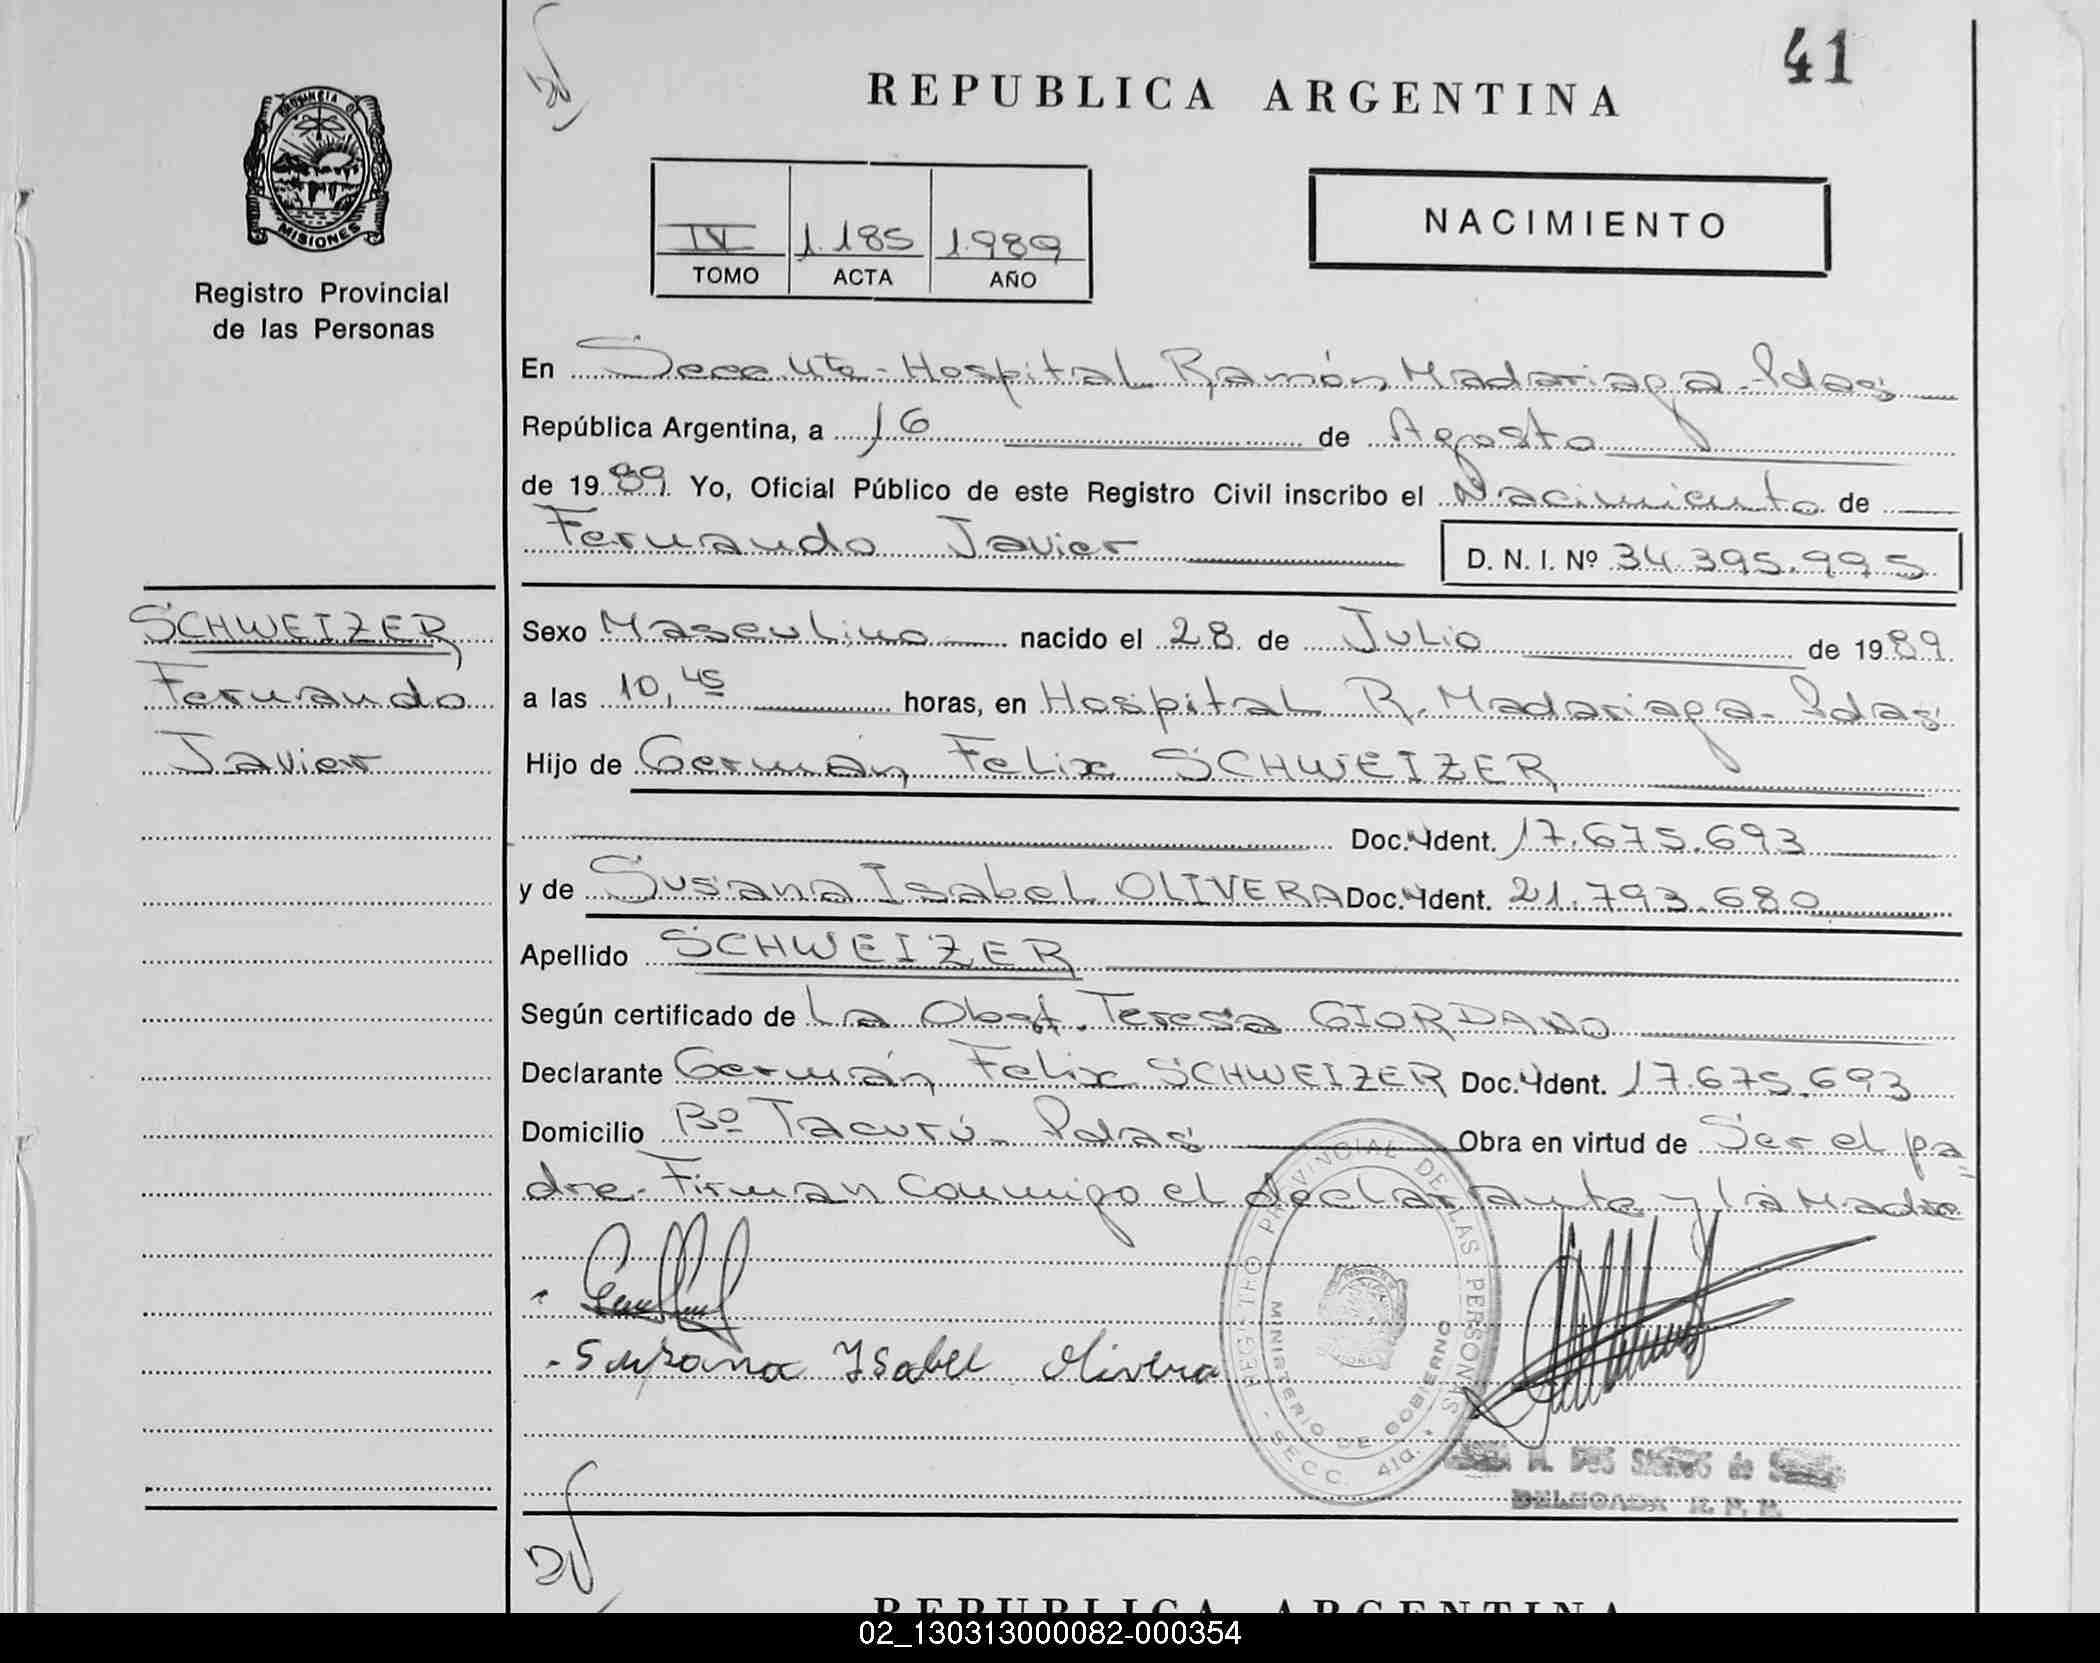 41
REPUBLICA ARGENTINA
PROVINCIA DE
MISIONES
Registro Provincial
de las Personas
IV 1.185 1.989
TOMO ACTA AÑO
NACIMIENTO
En Secc. 41ta - Hospital Ramón Madariaga - Pdas
República Argentina, a 16 de Agosto
de 1989 Yo, Oficial Público de este Registro Civil inscribo el Nacimiento de
Fernando Javier
D. N. I. Nº 34.395.995
SCHWEIZER
Fernando
Javier
Sexo Masculino nacido el 28 de Julio de 1989
a las 10,45 horas, en Hospital R. Madariaga - Pdas
Hijo de Germán Felix SCHWEIZER
Doc. Ident. 17.675.693
y de Susana Isabel OLIVERA Doc. Ident. 21.793.680
Apellido SCHWEIZER
Según certificado de La Obst. Teresa GIORDANO
Declarante Germán Felix SCHWEIZER Doc. Ident. 17.675.693
Domicilio Bº Tacurú - Pdas Obra en virtud de Ser el pa-
dre - Firman conmigo el declarante y la Madre
Susana Ysabel Olivera
REGISTRO PROVINCIAL DE LAS PERSONAS
MINISTERIO DE GOBIERNO
- SECC. 41a. -
M. DOS SANTOS de
DELEGADA R. P. P.
REPUBLICA ARGENTINA
02_130313000082-000354